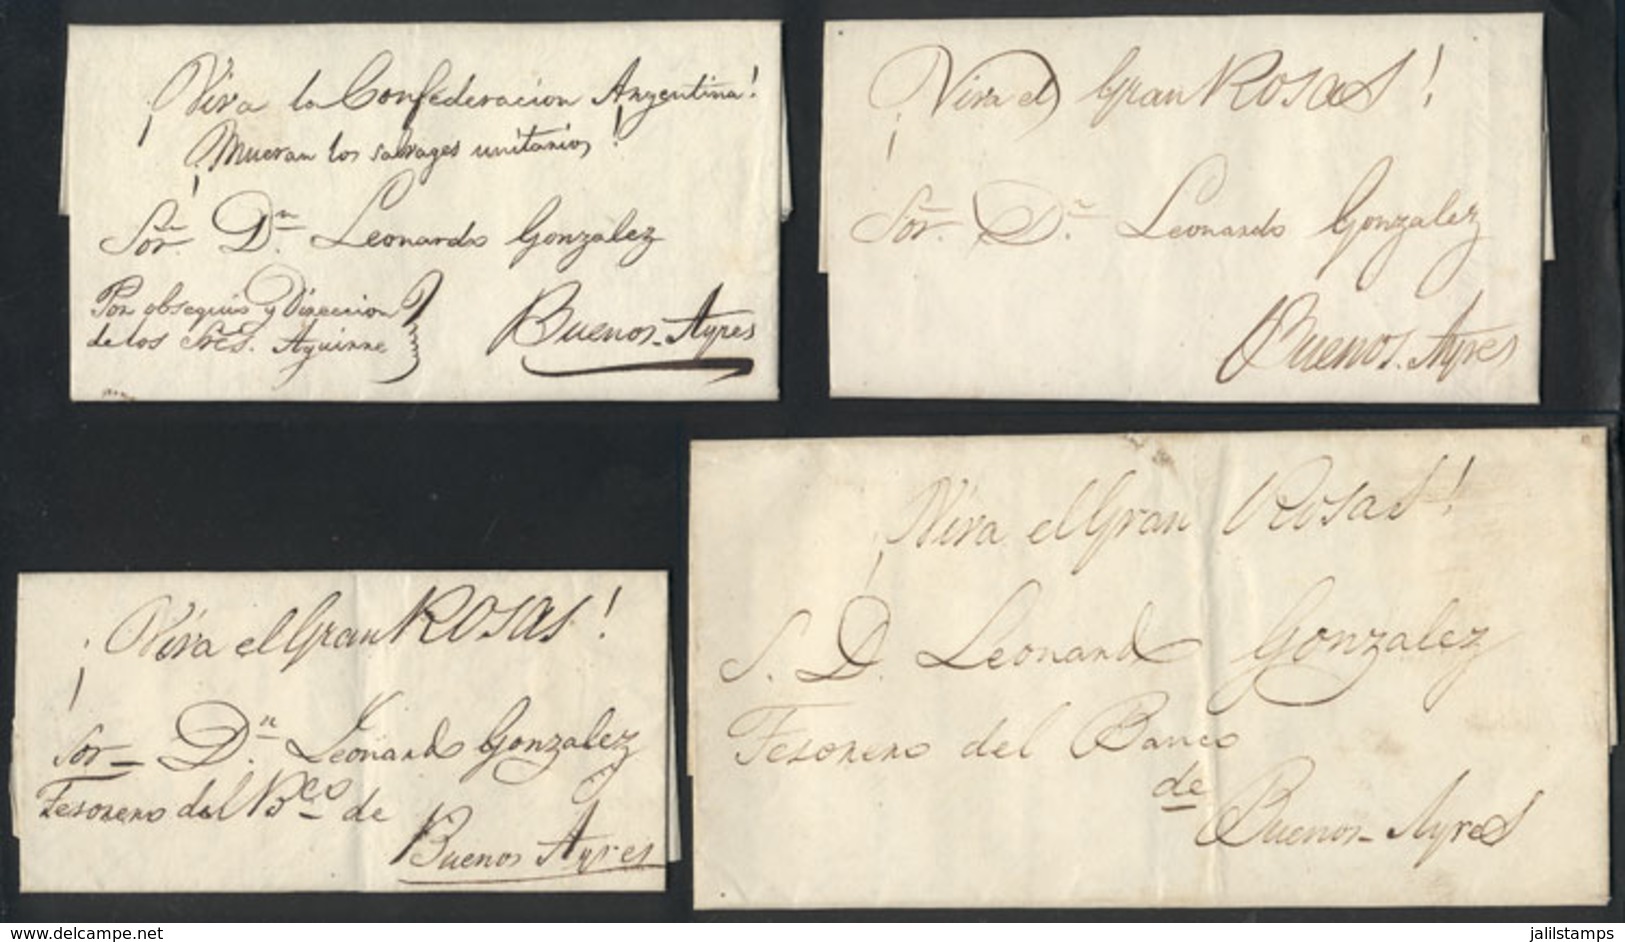 ¡Viva la Confederacion Argentina!
¡Mueran los salvages unitarios!
Sor. Dn. Leonardo Gonzalez
Por obsequio y Direccion
de los Sres. Aguirre
Buenos-Ayres
¡Viva el Gran Rosas!
Sor. Dn. Leonardo Gonzalez
Buenos-Ayres
¡Viva el Gran Rosas!
Sor Dn. Leonardo Gonzalez
Tesorero del Bco de
Buenos Ayres
¡Viva el Gran Rosas!
S. D. Leonardo Gonzalez
Tesorero del Banco
de
Buenos-Ayres
www.delcampe.net
jalilstamps